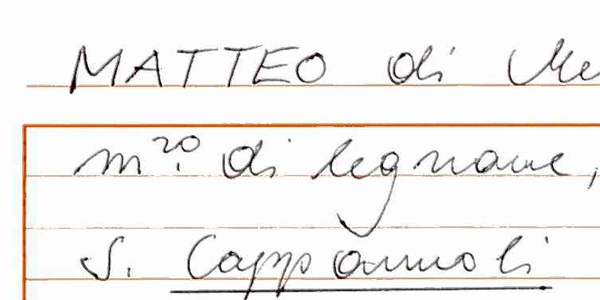 MATTEO di
m.ro di legname,
S. Cappannoli